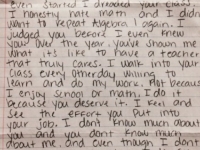 even started I dreaded your class.
I honestly hate math and I didn't
want to repeat Algebra 1 again. I
judged you before I even knew
you. Over the year you've shown me
what it's like to have a teacher
that truly cares. I walk into your
class every other day willing to
learn and do my work. Not because
I enjoy school or math. I do it
because you deserve it. I feel and
see the effort you put into
your job. I don't know much about
you and you don't know much
about me, and even though I don't